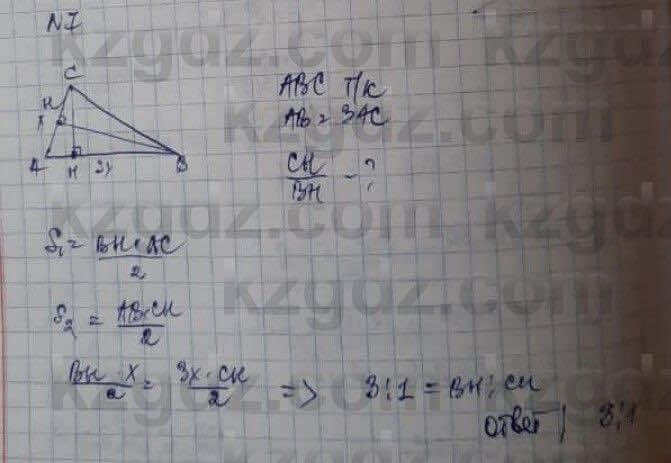 N7
C
H
x
A
H
3x
B
ABC т/к
AB = 3AC
CH/BH - ?
S₁ = BH·AC/2
S₂ = AB·CH/2
BH·x/2 = 3x·CH/2 => 3:1 = BH:CH
ответ 3:1
kzgdz.com
kzgdz.com
kzgdz.com
kzgdz.com
kzgdz.com